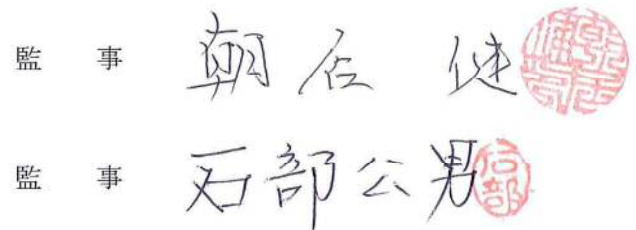 監事 朝 健
監事 石部公男
石部